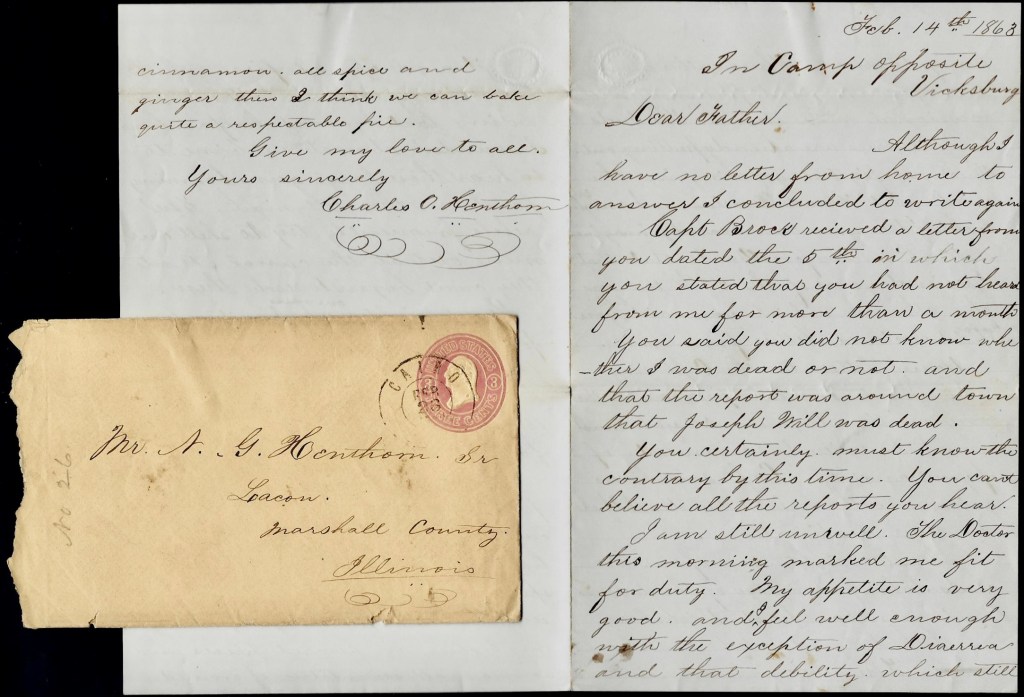 Feb. 14th 1863
In Camp opposite
Vicksburg
Dear Father.
Although I
have no letter from home to
answer I concluded to write again
Capt Brock recieved a letter from
you dated the 5th in which
you stated that you had not heard
from me for more than a month
You said you did not know whe
-ther I was dead or not. and
that the report was around town
that Joseph Will was dead.
You certainly must know the
contrary by this time. You cant
believe all the reports you hear.
I am still unwell. The Doctor
this morning marked me fit
for duty. My appetite is very
good. and I feel well enough
with the exception of Diaerrea
and that debility which still
cinnamon. all spice and
ginger then I think we can bake
quite a respectable pie.
Give my love to all.
Yours sincerely
Charles O. Henthorn
CAIRO
FEB
THREE CENTS
Mr. N. G. Henthorn. Sr
Lacon.
Marshall County.
Illinois
No 26